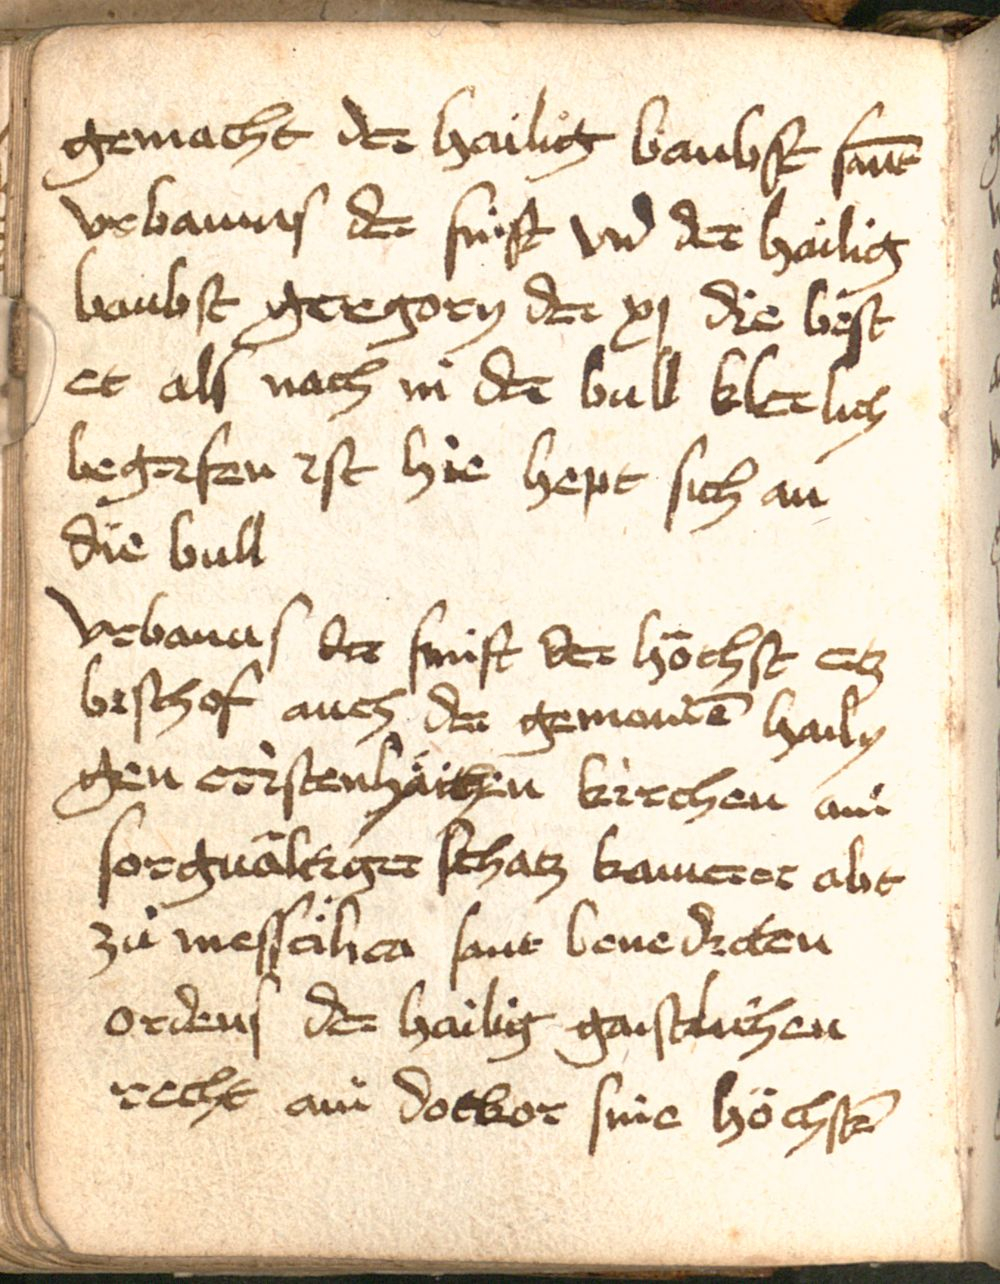 gemacht der hailig baubst sant
vrbanus der fúnft vnd der hailig
baubst gregory der xj die best
et als nach in der bull klerlich
begrifen ist hie hept sich an
die bull
vrbanus der fúnft der höchst etz
bischof auch der gemainē haily
gen cristenhäithen kirchen ain
sorguältiger schatz kamerer abt
zů messilien sant benedicten
ordens der hailig gaistlichen
recht ain doctor sine höchstē